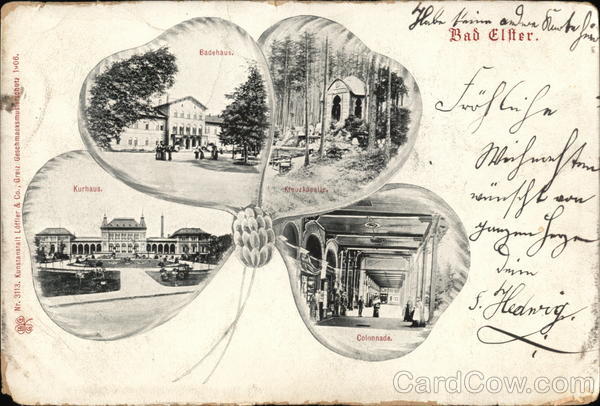 Habe keine andre Karte hier
Bad Elster.
Badehaus.
Kreuzkapelle.
Kurhaus.
Colonnade.
Fröhliche
Weihnachten
wünscht von
ganzem Herzen
Hedwig.
Nr. 3113. Kunstanstalt Löffler & Co., Greiz Geschmacksmusterschutz 1906.
CardCow.com